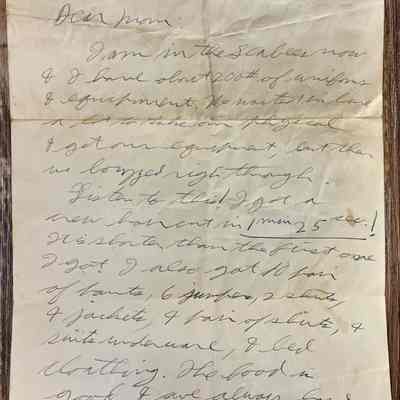 Dear Mom.
I am in the Seabees now
& I have about 200# of uniforms
& equipment. We waited in line
a lot to take our physical
& get our equipment, but then
we buzzed right through.
Listen to this! I got a
new haircut in 1 min 25 sec.!
It is shorter than the first one
I got! I also got 10 pair
of pants, 6 jumpers, 2 shirts,
4 jackets, 4 pair of shorts, 4
suits underware, & bed
cloathing. The food is
good. I